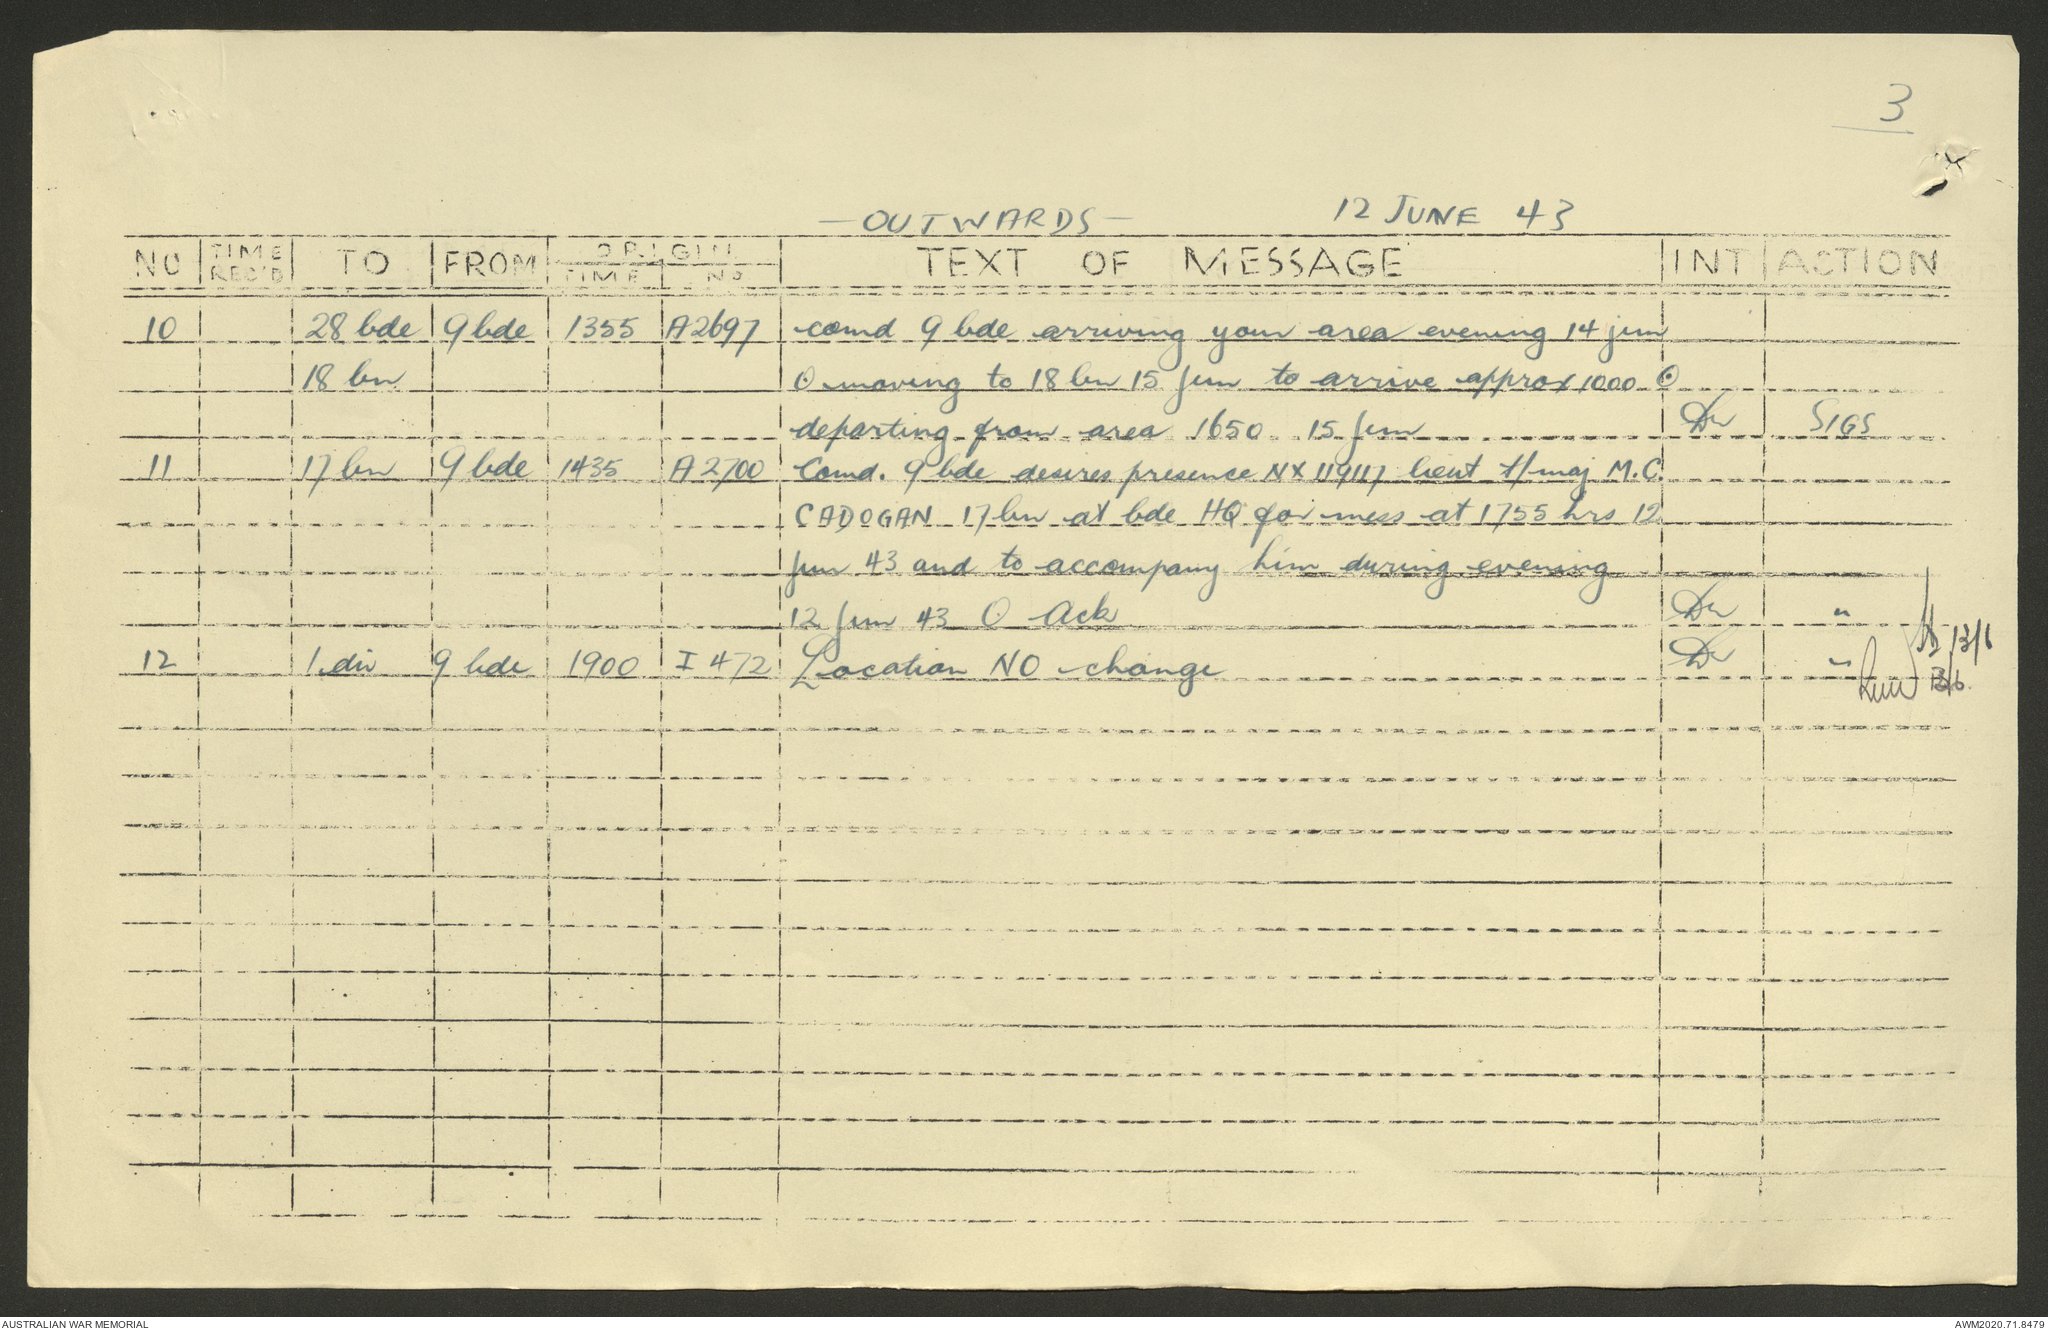 3
- OUTWARDS - 12 JUNE 43
NO TIME REC'D TO FROM ORIGIN TIME NO TEXT OF MESSAGE INT ACTION
10 28 bde 9 bde 1355 A2697 comd 9 bde arriving your area evening 14 jun
18 bn ʘ moving to 18 bn 15 Jun to arrive approx 1000 ʘ
departing from area 1650 15 Jun SIGS
11 17 bn 9 bde 1435 A2700 Comd. 9 bde desires presence NX119117 lieut t/maj M.C.
CADOGAN 17 bn at bde HQ for mess at 1755 hrs 12
jun 43 and to accompany him during evening
12 Jun 43 ʘ Ack "
12 1 div 9 bde 1900 I 472 Location NO change "
13/6
13/6
AUSTRALIAN WAR MEMORIAL AWM2020.71.8479